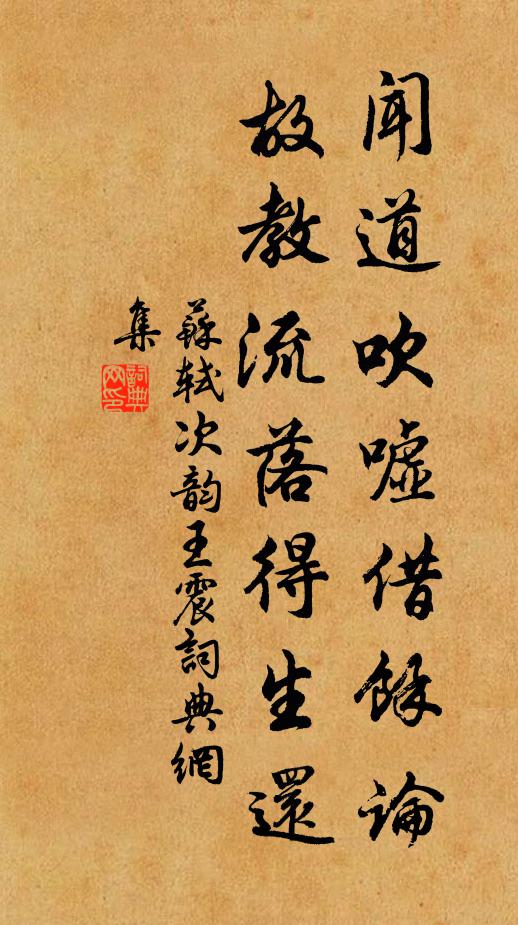 聞道吹噓借餘論
故教流落得生還
蘇軾次韵王震詞典網
集
詞典
网印